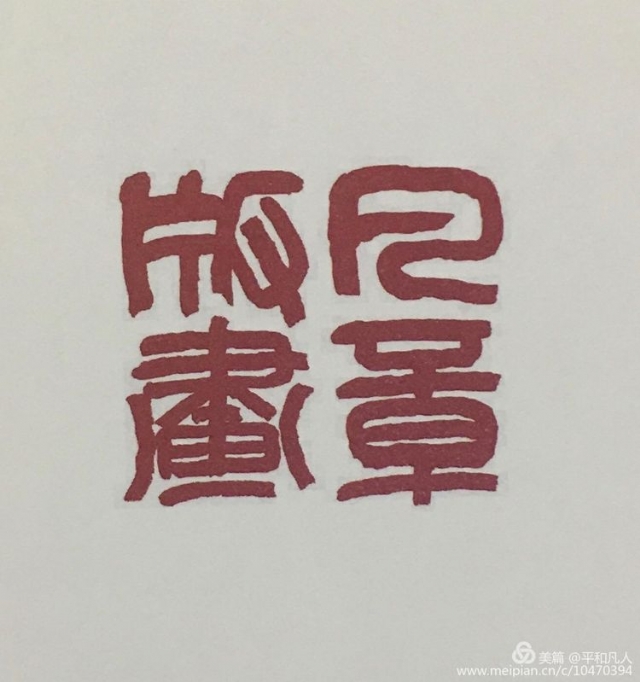 章
版畫
美篇 @平和凡人
www.meipian.cn/c/10470394